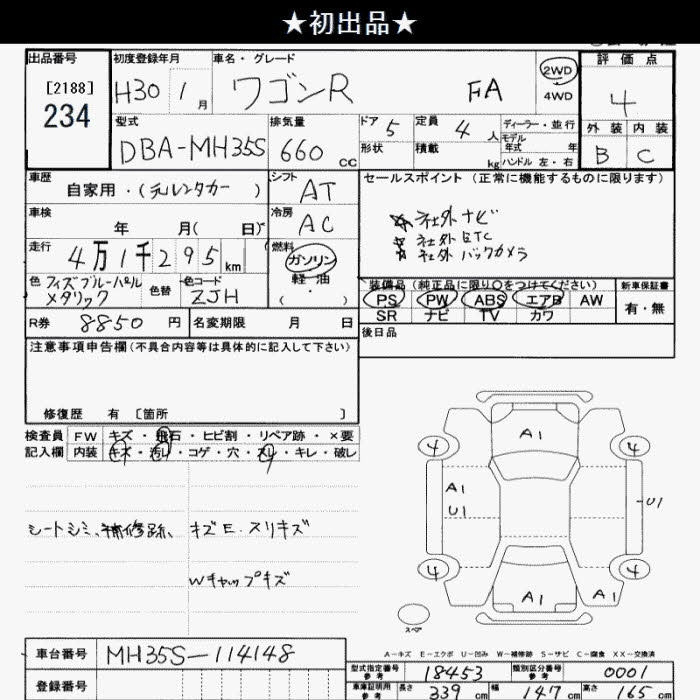 ★初出品★
出品番号
[2188]
234
初度登録年月
H30 1月
車名・グレード
ワゴンR FA
2WD
4WD
評価点
4
外装 内装
B C
型式
DBA-MH35S
排気量
660 cc
ドア 5
形状
定員 4人
積載 kg
ディーラー・並行
モデル年式 年
ハンドル 左・右
車歴
自家用・(元レンタカー)
シフト AT
車検
年 月(日)
冷房 AC
走行
4万1千295km
燃料
ガソリン
軽油
(・)
色 フィズブルーパール
メタリック
色替
色コード
ZJH
セールスポイント (正常に機能するものに限ります)
★社外ナビ
★社外ETC
★社外バックカメラ
装備品(純正品に限り○をつけてください)
PS PW ABS エアB AW
SR ナビ TV カワ
新車保証書
有・無
R券 8850円
名変期限 月 日
後日品
注意事項申告欄(不具合内容等は具体的に記入して下さい)
修復歴 有 [箇所 ]
検査員 FW キズ・飛石・ヒビ割・リペア跡・×要
記入欄 内装 キズ・汚レ・コゲ・穴・スレ・キレ・破レ
シートシミ、補修跡、キズE.スリキズ
Wキャップキズ
A1
4 4
A1
U1
U1
4 4
A1
A1
スペア
A-キズ E-エクボ U-凹み W-補修跡 S-サビ C-腐食 XX-交換済
車台番号 MH35S-114148
登録番号
型式指定番号
参考
18453
類別区分番号
参考
0001
車庫証明用
参考
長さ 339cm 幅 147cm 高さ 165cm